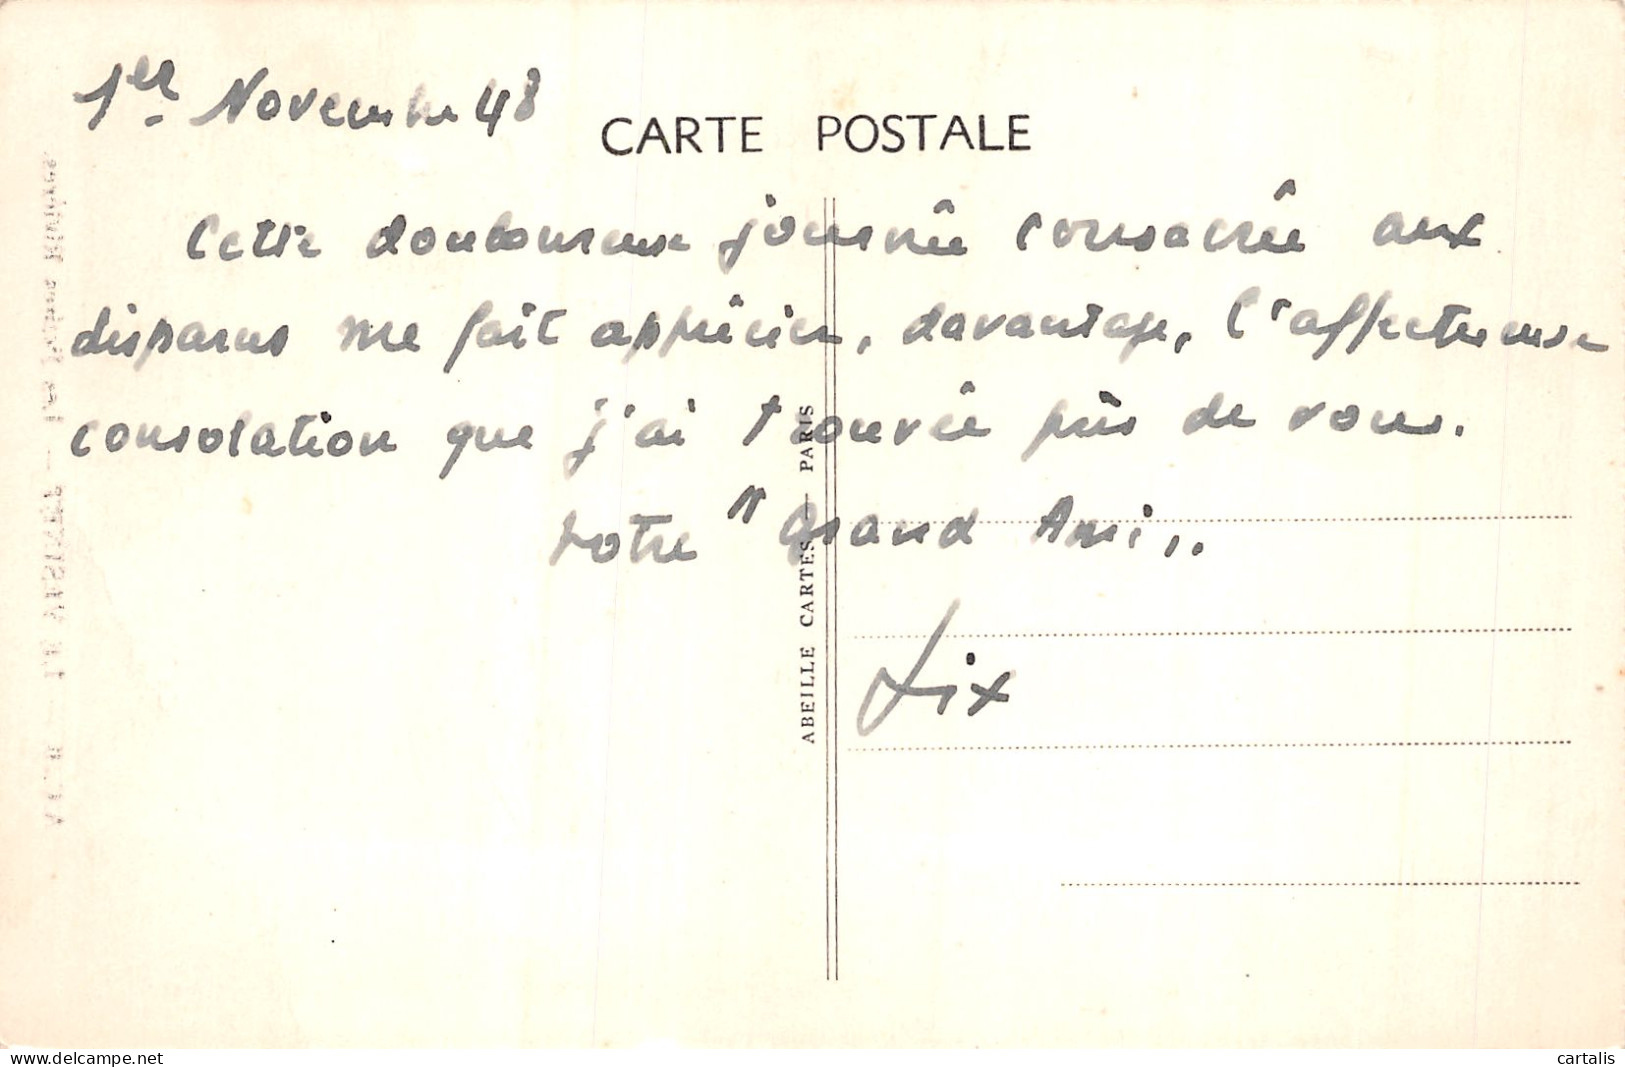 1er Novembre 48
CARTE POSTALE
Cette douloureuse journée consacrée aux
disparus me fait apprécier, davantage, l'affectueuse
consolation que j'ai trouvée près de vous.
votre "Grand Ami".
ABEILLE CARTES — PARIS
LE VESINET
cartalis